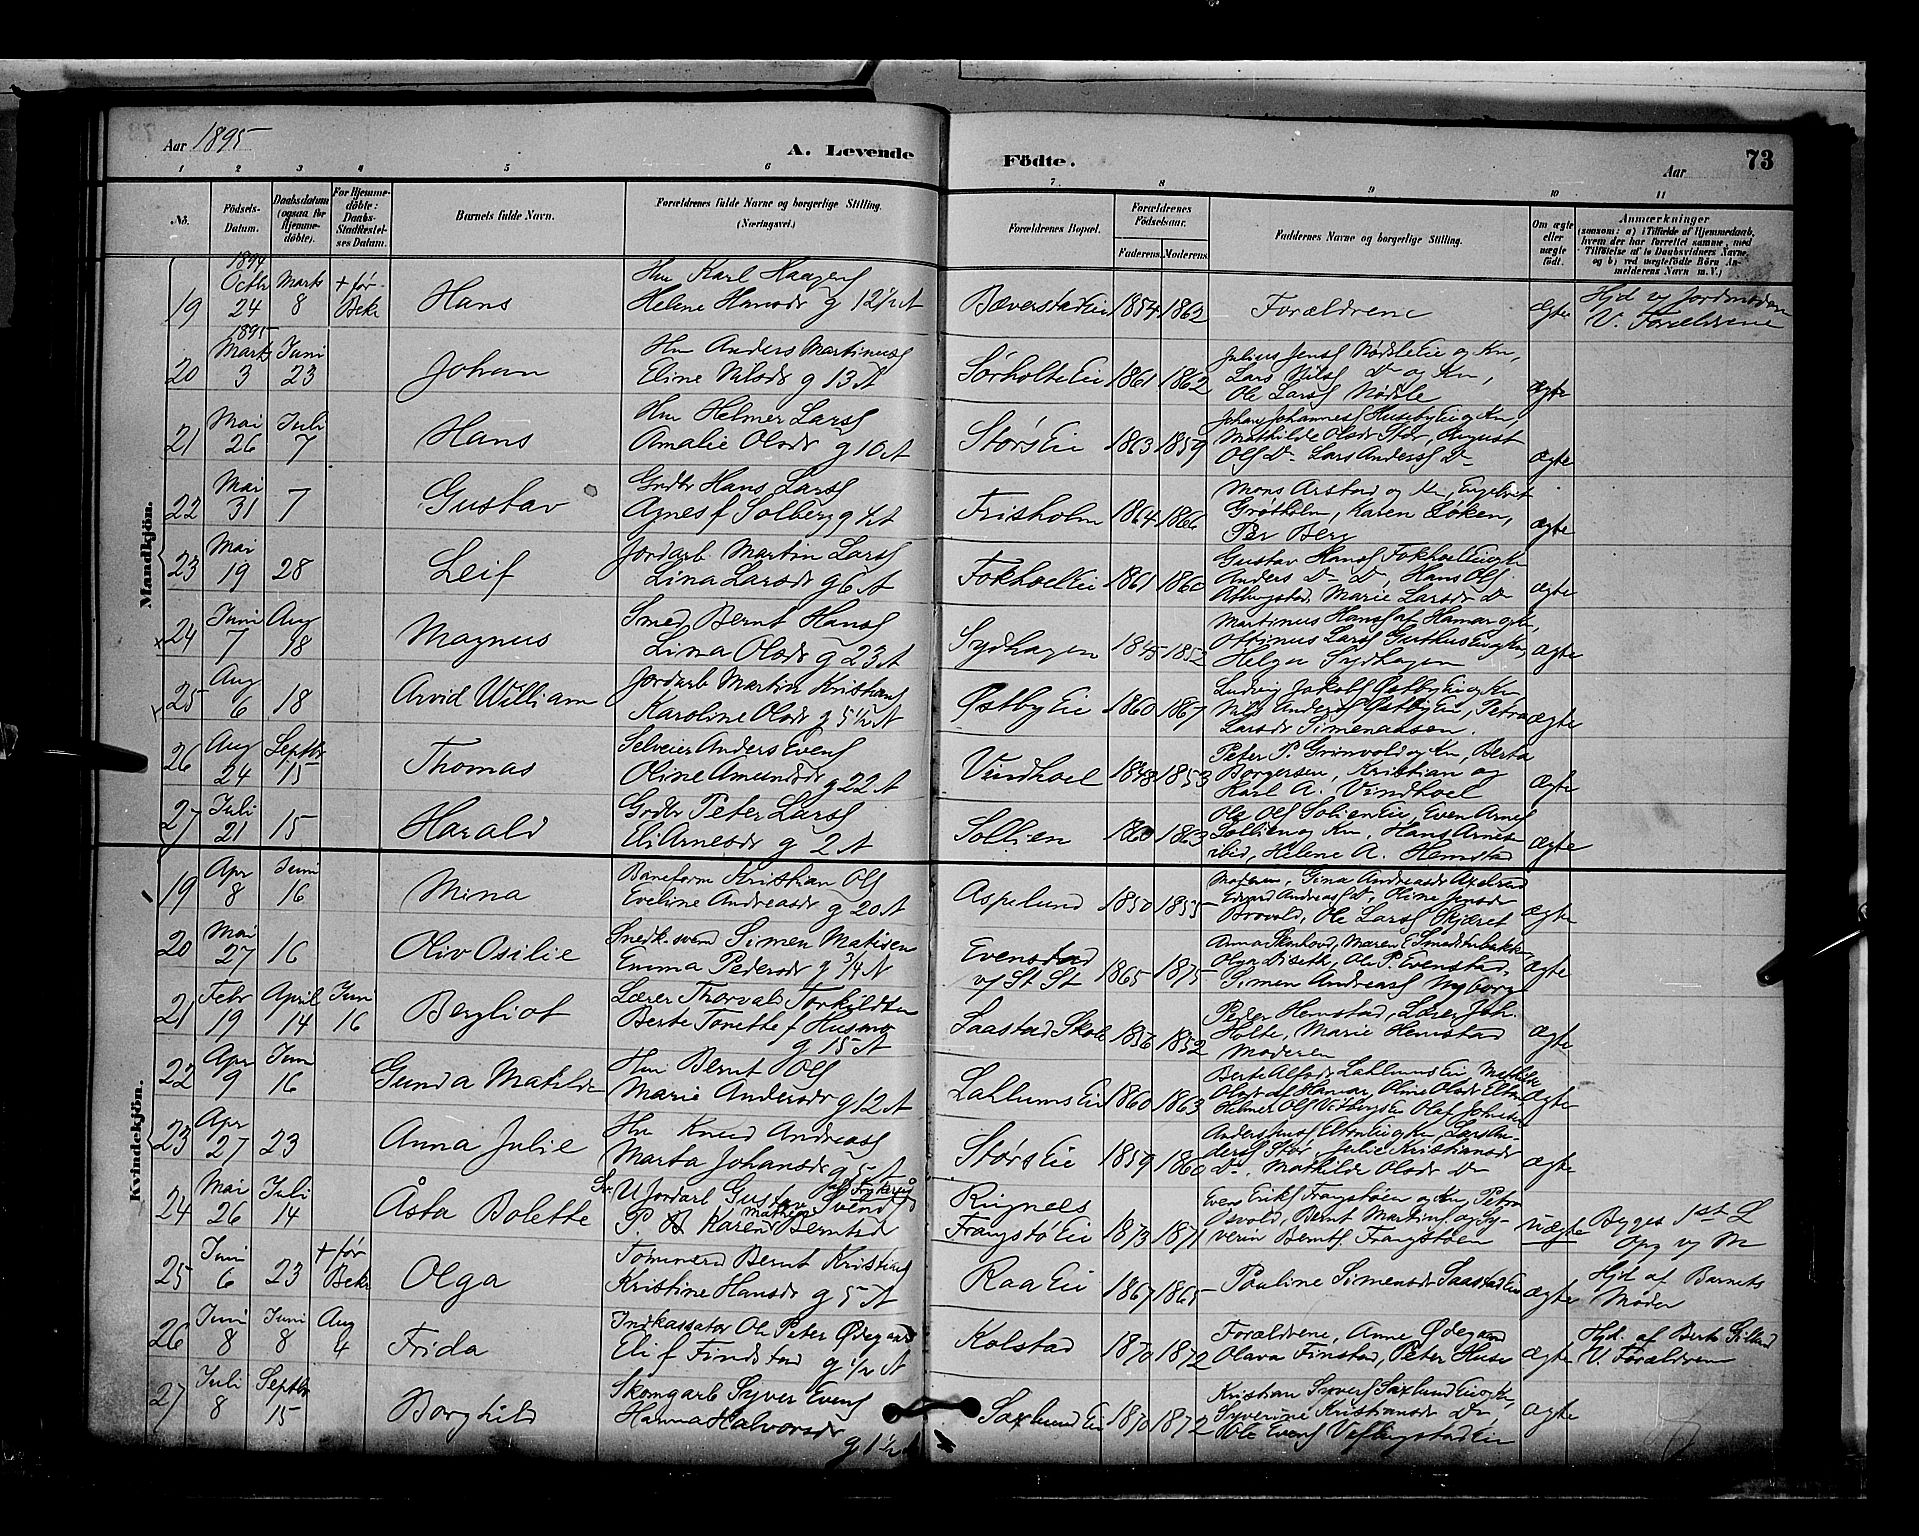 Aar 1895
A. Levende
Födte.
Aar
73
1 2 3 4 5 6 7 8 9 10 11
No.
Födsels-Datum.
Daabsdatum (ogsaa for Hjemme-döbte).
For Hjemme-döbte: Daabs-Stadfæstel-ses Datum.
Barnets fulde Navn.
Forældrenes fulde Navne og borgerlige Stilling.
(Næringsvei.)
Forældrenes Bopæl.
Forældrenes Födselsaar.
Faderens. Moderens.
Faddernes Navne og borgerlige Stilling.
Om ægte eller uægte födt.
Anmærkninger
(saasom: a) i Tilfælde af Hjemmedaab,
hvem der har forrettet samme, med
Tilföielse af to Daabsvidners Navne,
og b) ved uægtefödte Börn An-
melderens Navn m. V.)
Mandkjön.
19 1894 Octbr 24 Marts 8 + før Bekr Hans
Hm Karl Haagens
Helene Hansdr g 12 1/2 A
Bæverstad Eie 1854 1862 Forældrene ægte
Hjd v/ Jordmoden
V. Forældrene
20 1895 Marts 3 Juni 23 Johan
Hm Anders Martinus
Eline Nilsdr g 13 A
Sørholte Eie 1861 1862
Julius Jens Nødsle Eie og Kn,
Lars Nils Do og Kn,
Ole Lars Nødsle
ægte
21 Mai 26 Juli 7 Hans
Hm Helmer Lars
Amalie Olsdr g 10 A
Störs Eie 1863 1859
Johan Johannes Huseby Eie og Kn,
Mathilde Olsdr Stör, August
Ols Do Lars Anders Do
ægte
22 Mai 31 7 Gustav
Grdbr Hans Lars
Agnes f Solberg g 4 A
Frisholm 1864 1866
Mons Arstad og Kn, Engebret
Grøtholm, Karen Løken,
Per Berg
ægte
23 Mai 19 28 Leif
Jordarb Martin Lars
Lina Larsdr g 6 A
Fokhol Eie 1861 1860
Gustav Hans Fokhol Eie og Kn
Anders Do Do, Hans Ols
Marie Larsdr Do
ægte
24 Juni 7 Aug 18 Magnus
Smed Bernt Hans
Lina Olsdr g 23 A
Sydhagen 1845 1852
Martinus Hans af Hamar og Kn,
Otrinus Lars Guthus Eie og Kn,
Helga Sydhagen
ægte
25 Aug 6 18 Arvid William
Jordarb Martin Kristians
Karoline Olsdr g 5 1/2 A
Østby Eie 1860 1867
Ludvig Jakobs Østby Eie og Kn
Nils Anders Østby Eie, Petra
Larsdr Simenaasen.
ægte
26 Aug 24 Septbr 15 Thomas
Selveier Anders Evens
Oline Amundsdr g 22 A
Vindhoel 1848 1853
Peter P. Grönvold og Kn, Berta
Borgersen, Kristian og
Karl A. Vindhoel
ægte
27 Juli 21 15 Harald
Grdbr Peter Lars
Eli Arnesdr g 2 A
Sollien 1860 1863
Ole Ols Solien Eie, Even Arnes
Sollien og Kn, Hans Arnes
ibid, Helene A. Hemstad
ægte
Kvindekjön.
19 Apr 8 Juni 16 Mina
Baneform Kristian Ols
Eveline Andreasdr g 20 A
Aspelund 1850 1855
Moderen, Gina Andreasdr
Edvard Andreas Do, Oline Jensdr
Brovold, Ole Lars Skjæret
ægte
20 Mai 27 16 Oliv Osilie
Snedk.svend Simen Matisen
Emma Pedersdr g 3/4 A
Evenstad
v/ St St 1865 1875
Anna Skovlovd, Maren E Smedstubakke
Olga Diseth, Ole P. Evenstad,
Simen Andreas Nyborg
ægte
21 Febr 19 April 14 Juni 16 Bergliot
Lærer Thorvald Torkildsen
Berte Tonette f Husmo
g 15 A
Saastad Skole 1856 1852
Peder Hemstad, Lærer Joh.
Holte, Marie Hemstad
Moderen
ægte
22 Apr 9 Juni 16 Gunda Matilde
Hm Bernt Ols
Marie Andersdr g 12 A
Lahlums Eie 1860 1863
Berte Alfsdr Lahlums Eie, Mathilde
Olsdr af Hamar, Oline Olsdr Elton
Helmer Ols
ægte
23 Apr 27 23 Anna Julie
Hm Knud Andreas
Marta Johansdr g 5 A
Störs Eie 1859 1860
Anders Jens Elton Eie og Kn, Lars An-
ders Stör, Julie Kristiansdr
Do. Mathilde Olsdr Do
ægte
24 Mai 26 Juli 14 Åsta Bolette
U Jordarb Gustav Svends
P. Karen Mathea Berntsd
Ringnæs
Frangstø Eie 1873 1871
Even Eriks Frangstøen og Kn, Petra
Osvold, Bernt Martins og Sy-
verin Bernts Frangstøen
uægte
Byges 1st L
Opg v/ M
25 Juni 6 23 + før Bekr Olga
Tømmerd Bernt Kristians
Kristine Hansdr g 5 A
Raa Eie 1867 1865 Pauline Simensdr Saastad Eie ægte
Hjd af Barnets
Moder
26 Juni 8 Juni 8 Aug 4 Frida
Indkassator Ole Peter Ødegaard
Eli f Findstad g 1/2 A
Kolstad 1870 1872
Forældrene, Anne Ødegaard
Olava Finstad, Peter Huse
ægte
Hjd. af Berte
V. Forældrene
27 Juli 8 Septbr 15 Borghild
Skomgarb Syver Evens
Hanna Halvorsdr
g 1 1/2 A
Saxlund Eie 1870 1872
Kristian Syvers Saxlund Eie og Kn,
Syverine Kristiansdr Do,
Ole Evens
ægte